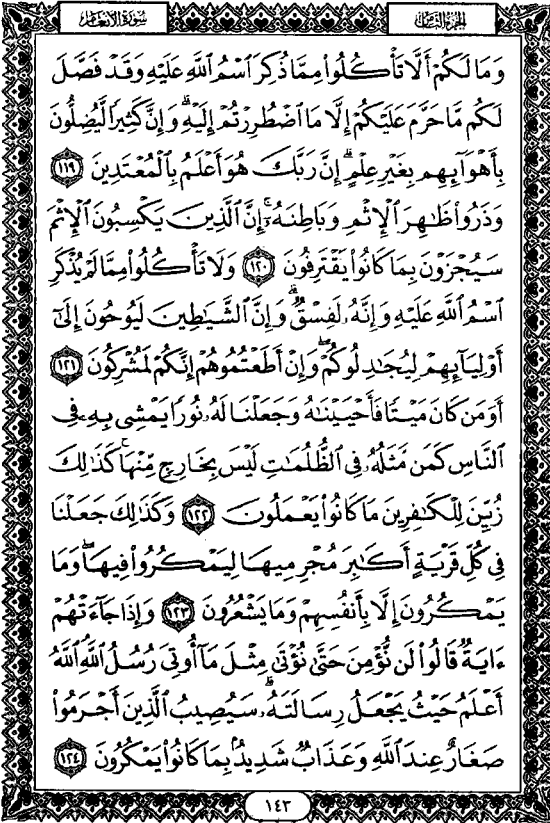 سورة الأنعام
الجزء الثامن
وَمَا لَكُمْ أَلَّا تَأْكُلُوا۟ مِمَّا ذُكِرَ ٱسْمُ ٱللَّهِ عَلَيْهِ وَقَدْ فَصَّلَ
لَكُم مَّا حَرَّمَ عَلَيْكُمْ إِلَّا مَا ٱضْطُرِرْتُمْ إِلَيْهِ ۗ وَإِنَّ كَثِيرًا لَّيُضِلُّونَ
بِأَهْوَآئِهِم بِغَيْرِ عِلْمٍ ۗ إِنَّ رَبَّكَ هُوَ أَعْلَمُ بِٱلْمُعْتَدِينَ ١١٩
وَذَرُوا۟ ظَٰهِرَ ٱلْإِثْمِ وَبَاطِنَهُۥٓ ۚ إِنَّ ٱلَّذِينَ يَكْسِبُونَ ٱلْإِثْمَ
سَيُجْزَوْنَ بِمَا كَانُوا۟ يَقْتَرِفُونَ ١٢٠ وَلَا تَأْكُلُوا۟ مِمَّا لَمْ يُذْكَرِ
ٱسْمُ ٱللَّهِ عَلَيْهِ وَإِنَّهُۥ لَفِسْقٌ ۗ وَإِنَّ ٱلشَّيَٰطِينَ لَيُوحُونَ إِلَىٰٓ
أَوْلِيَآئِهِمْ لِيُجَٰدِلُوكُمْ ۖ وَإِنْ أَطَعْتُمُوهُمْ إِنَّكُمْ لَمُشْرِكُونَ ١٢١
أَوَمَن كَانَ مَيْتًا فَأَحْيَيْنَٰهُ وَجَعَلْنَا لَهُۥ نُورًا يَمْشِى بِهِۦ فِى
ٱلنَّاسِ كَمَن مَّثَلُهُۥ فِى ٱلظُّلُمَٰتِ لَيْسَ بِخَارِجٍ مِّنْهَا ۚ كَذَٰلِكَ
زُيِّنَ لِلْكَٰفِرِينَ مَا كَانُوا۟ يَعْمَلُونَ ١٢٢ وَكَذَٰلِكَ جَعَلْنَا
فِى كُلِّ قَرْيَةٍ أَكَٰبِرَ مُجْرِمِيهَا لِيَمْكُرُوا۟ فِيهَا ۖ وَمَا
يَمْكُرُونَ إِلَّا بِأَنفُسِهِمْ وَمَا يَشْعُرُونَ ١٢٣ وَإِذَا جَآءَتْهُمْ
ءَايَةٌ قَالُوا۟ لَن نُّؤْمِنَ حَتَّىٰ نُؤْتَىٰ مِثْلَ مَآ أُوتِىَ رُسُلُ ٱللَّهِ ٱللَّهُ
أَعْلَمُ حَيْثُ يَجْعَلُ رِسَالَتَهُۥ ۗ سَيُصِيبُ ٱلَّذِينَ أَجْرَمُوا۟
صَغَارٌ عِندَ ٱللَّهِ وَعَذَابٌ شَدِيدٌۢ بِمَا كَانُوا۟ يَمْكُرُونَ ١٢٤
١٤٣